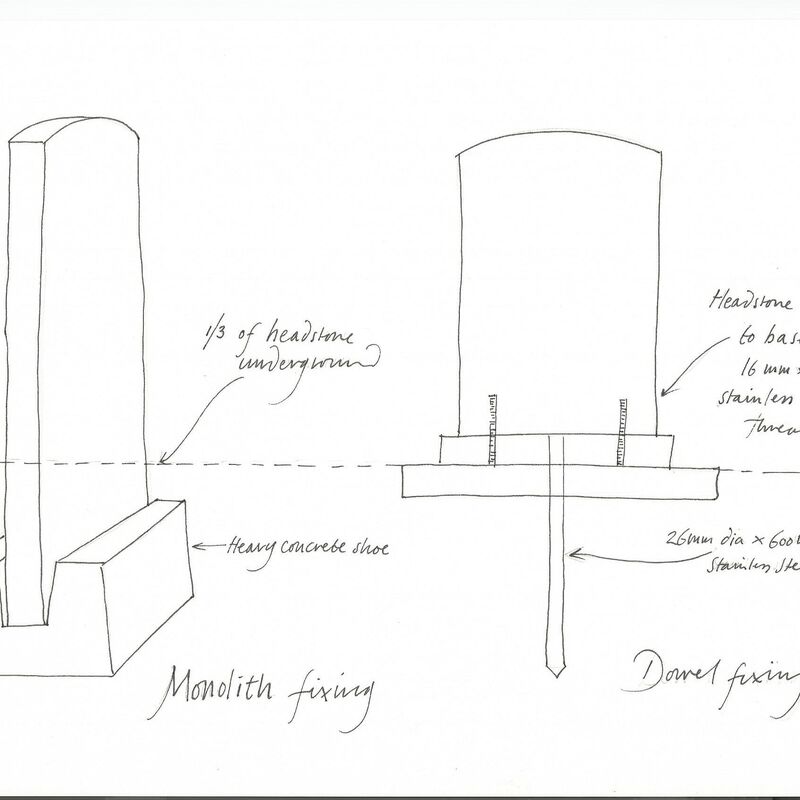 1/3 of headstone
underground
Heavy concrete shoe
Monolith fixing
Headstone
to bas
16 mm
stainless
Threa
26mm dia x 600
Stainless Ste
Dowel fixin